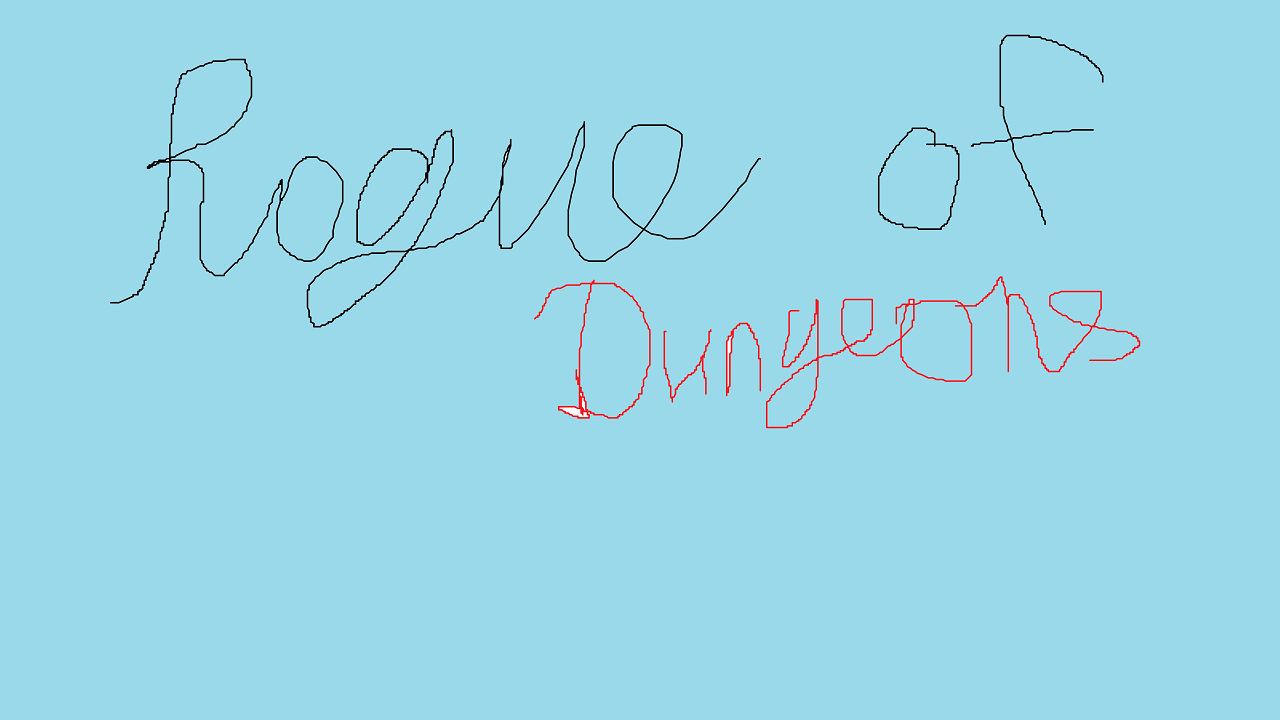 Rogue of
Dungeons